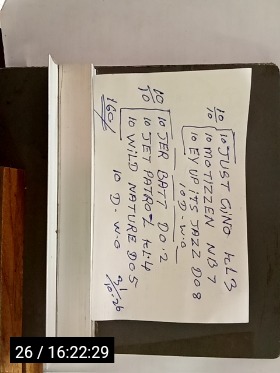 10 JUST GINO KL3
10 MOTIZZEN NB7
10 EY UP ITS JAZZ DO8
10 D. W.O
10
10
10 JER BATT DO.2
10 JET PATROL KL4
10 WILD NATURE DO5
10 D. W.O
10
10
160/
26 / 16:22:29